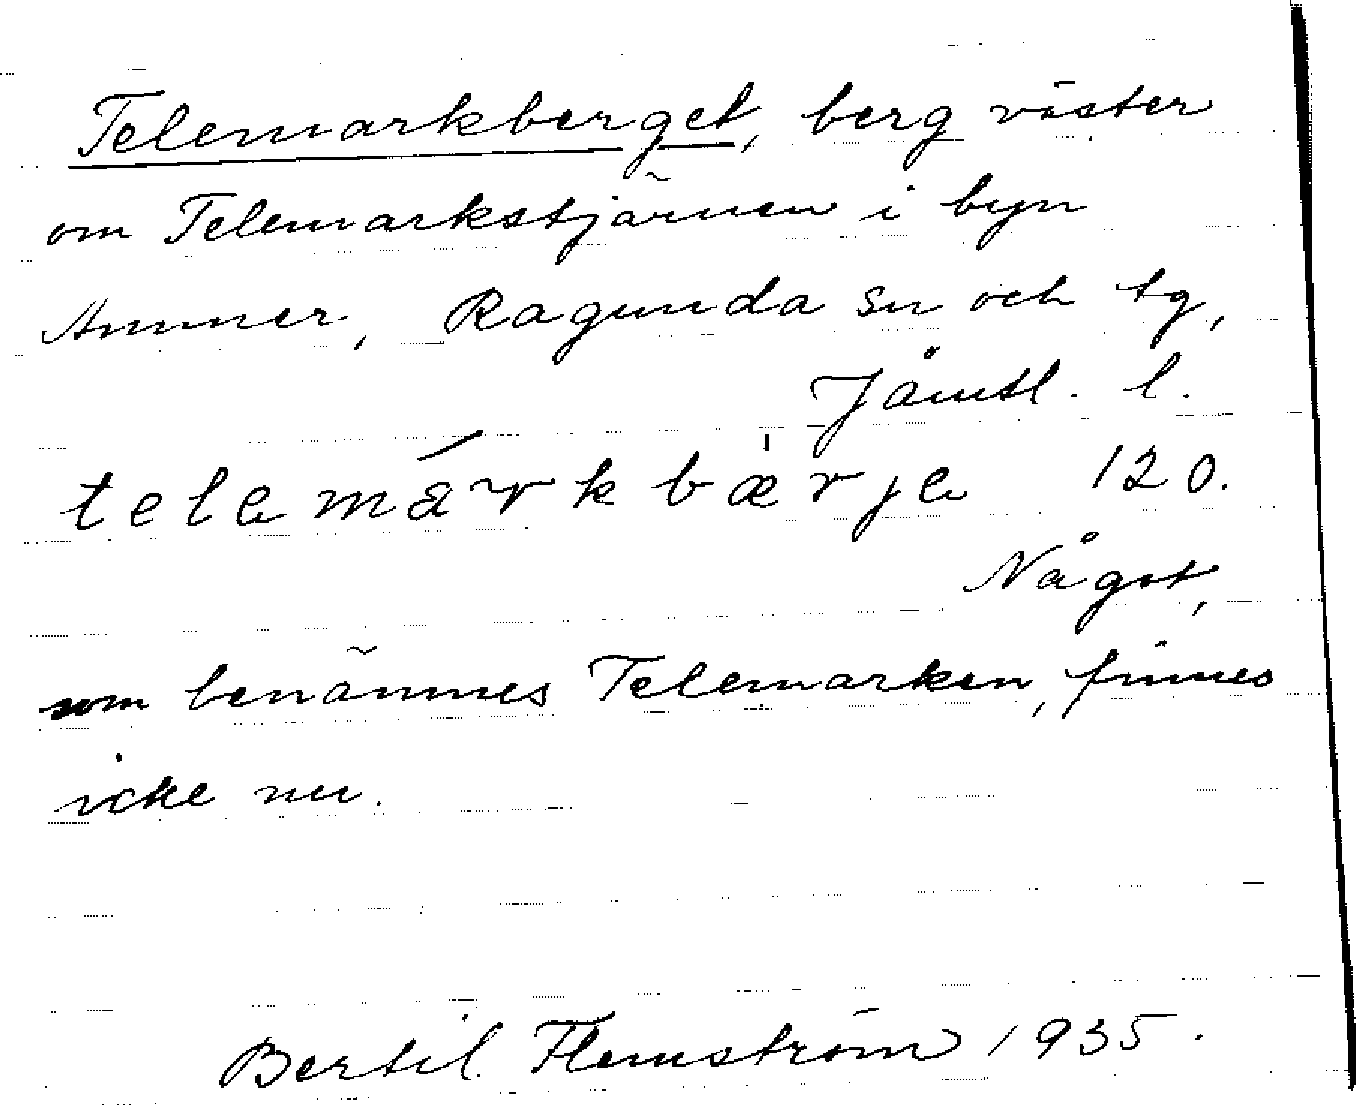 Telemarkberget, berg väster
om Telemarkstjärnen i byn
Ammer, Ragunda sn och tg,
Jämtl. l.
telemárkbæ̍rje 120.
Något,
som benämnes Telemarken, finnes
icke nu.
Bertil Flemström 1935.